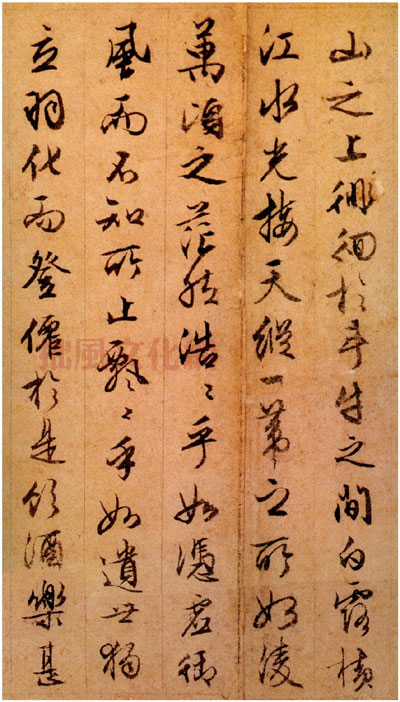 山之上徘徊於斗牛之間白露橫
江水光接天縱一葦之所如凌
萬頃之茫然浩〻乎如憑虛御
風而不知所止飄〻乎如遺世獨
立羽化而登僊於是飲酒樂甚